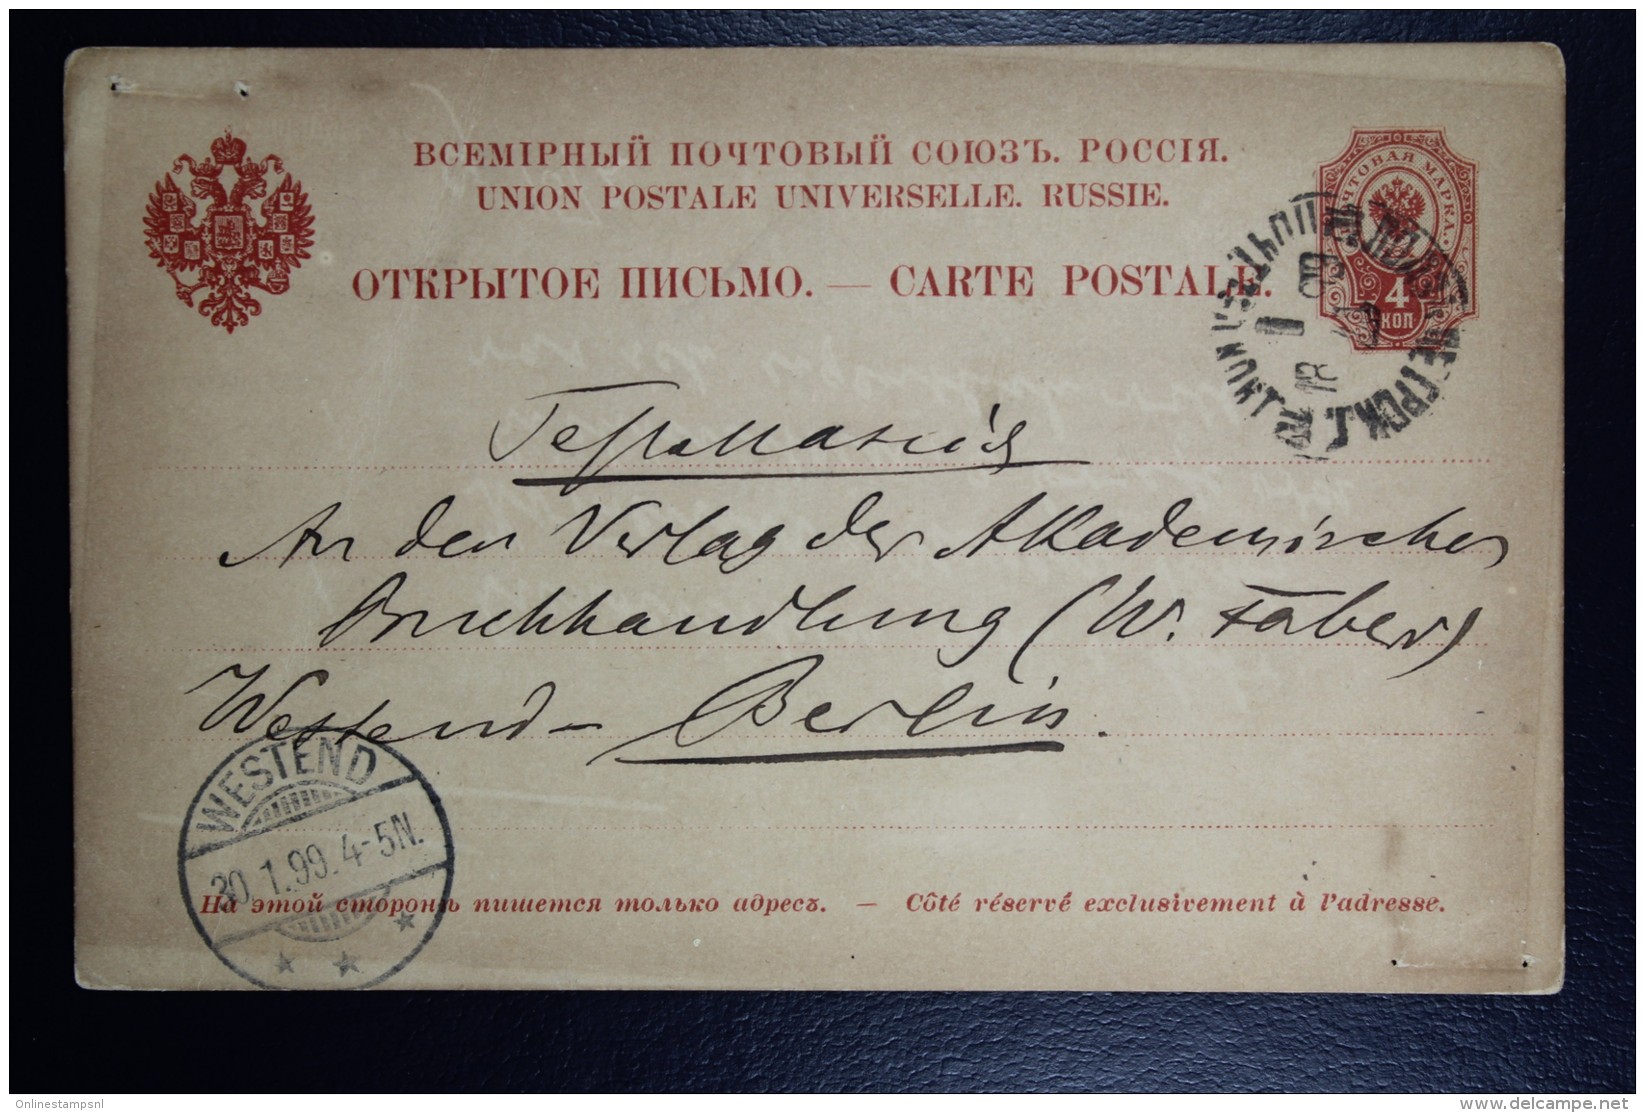 ВСЕМІРНЫЙ ПОЧТОВЫЙ СОЮЗЪ. РОССІЯ.
UNION POSTALE UNIVERSELLE. RUSSIE.
ОТКРЫТОЕ ПИСЬМО. — CARTE POSTALE.
ПОЧТОВАЯ МАРКА.
4
КОП.
Германія
An den Verlag der Akademischen
Buchhandlung (W. Faber)
Westend – Berlin.
WESTEND
30.1.99.4-5N.
На этой сторонѣ пишется только адресъ. — Côté réservé exclusivement à l'adresse.
Onlinestampsnl
delcampe.net